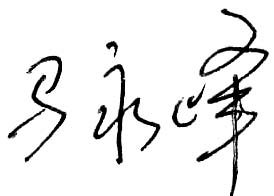 马永峰